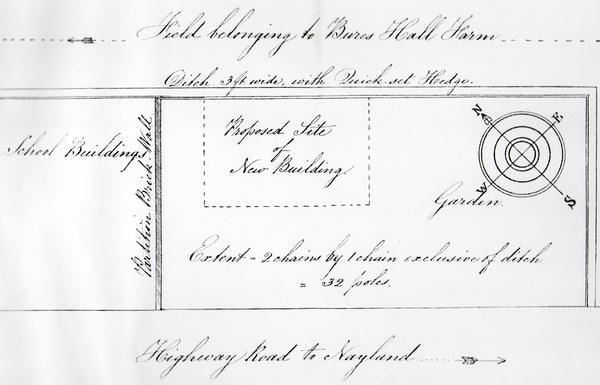 Field belonging to Bures Hall Farm
Ditch 3ft wide, with Quick-set Hedge.
School Buildings
Partition Brick Wall
Proposed Site
of
New Building.
N
E
W
S
Garden.
Extent = 2 chains by 1 chain exclusive of ditch
= 32 poles.
Highway Road to Nayland